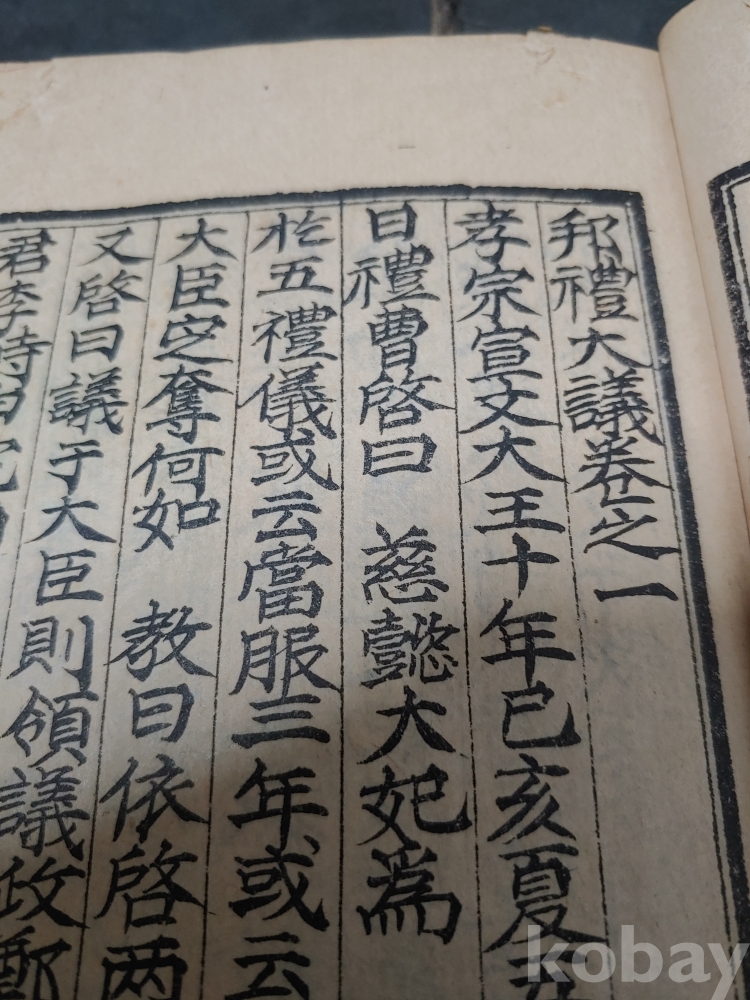 邦禮大議卷之一
孝宗宣文大王十年己亥夏五
日禮曹啓曰 慈懿大妃爲
於五禮儀或云當服三年或云
大臣定奪何如 敎曰依啓兩
又啓曰議于大臣則領議政鄭
君李時白
kobay